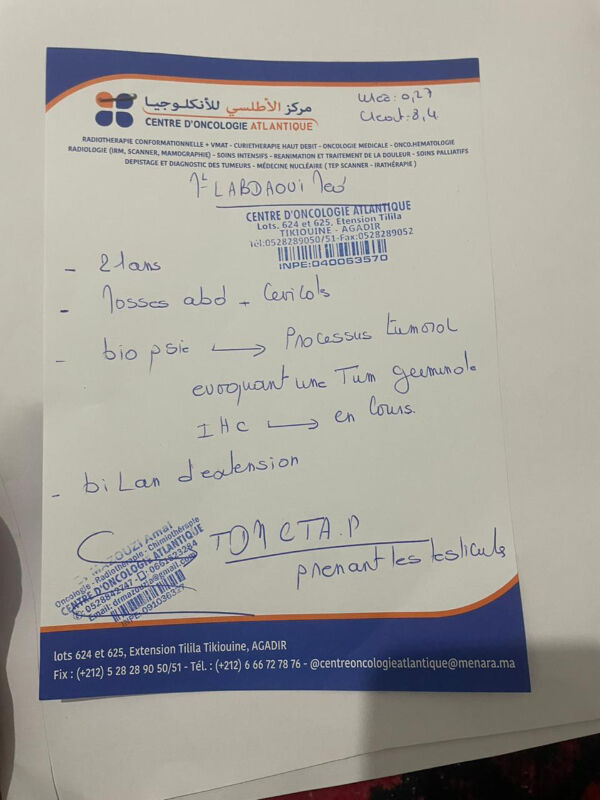 مركز الأطلسي للأنكلوجيا
CENTRE D'ONCOLOGIE ATLANTIQUE
Urea: 0,27
Creat: 8,4
RADIOTHERAPIE CONFORMATIONNELLE + VMAT - CURIETHERAPIE HAUT DEBIT - ONCOLOGIE MEDICALE - ONCO.HEMATOLOGIE
RADIOLOGIE (IRM, SCANNER, MAMOGRAPHIE) - SOINS INTENSIFS - REANIMATION ET TRAITEMENT DE LA DOULEUR - SOINS PALLIATIFS
DEPISTAGE ET DIAGNOSTIC DES TUMEURS - MÉDECINE NUCLÉAIRE ( TEP SCANNER - IRATHÉRAPIE )
LABDAOUI
CENTRE D'ONCOLOGIE ATLANTIQUE
Lots. 624 et 625, Etension Tilila
TIKIOUINE - AGADIR
Tél:0528289050/51-Fax:0528289052
INPE:040063570
- 21 ans
- Masses abd + Cervicols
- bio psie → Processus tumoral
evoquant une Tum germinale
IHC → en Cours.
- biLan d'extension
TDM CTA.P
prenant les testicules
Amal
Oncologie - Radiothérapie - Chimiothérapie
CENTRE D'ONCOLOGIE ATLANTIQUE
0528842747 - 0662823284
Email: drmazouzia@gmail.com
lots 624 et 625, Extension Tilila Tikiouine, AGADIR
Fix : (+212) 5 28 28 90 50/51 - Tél. : (+212) 6 66 72 78 76 - @centreoncologieatlantique@menara.ma